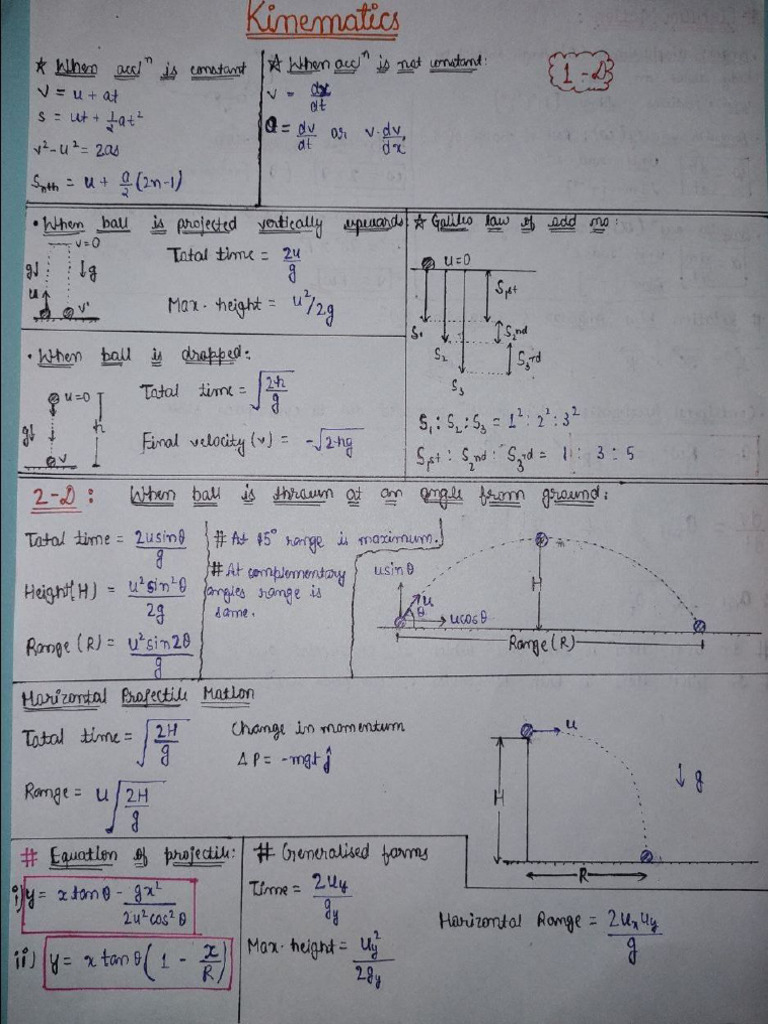 Kinematics
☆ When accⁿ is constant
v = u + at
s = ut + ½at²
v² - u² = 2as
Sₙₜₕ = u + a/2 (2n-1)
☆ When accⁿ is not constant:
v = dx/dt
a = dv/dt or v·dv/dx
1-D
• When ball is projected vertically upwards
v=0
g↓ ↓g
u v'
Total time = 2u/g
Max. height = u²/2g
☆ Galileo law of odd no:
u=0
S₁ S₂ S₃
S₁st S₂nd S₃rd
S₁ : S₂ : S₃ = 1² : 2² : 3²
S₁st : S₂nd : S₃rd = 1 : 3 : 5
• When ball is dropped:
u=0
g↓ h
v
Total time = √(2h/g)
Final velocity (v) = -√2hg
2-D: When ball is thrown at an angle from ground:
Total time = 2usinθ/g
Height(H) = u²sin²θ/2g
Range (R) = u²sin2θ/g
# At 45° range is maximum.
# At complementary
angles range is
same.
usinθ
u
θ
ucosθ
H
Range(R)
Horizontal Projectile Motion
Total time = √(2H/g)
Range = u√(2H/g)
Change in momentum
ΔP = -mgt ĵ
u
H
↓ g
R
# Equation of projectile:
i) y = x tanθ - gx²/2u²cos²θ
ii) y = x tanθ (1 - x/R)
# Generalised forms
Time = 2uy/gy
Max. height = uy²/2gy
Horizontal Range = 2uxuy/g